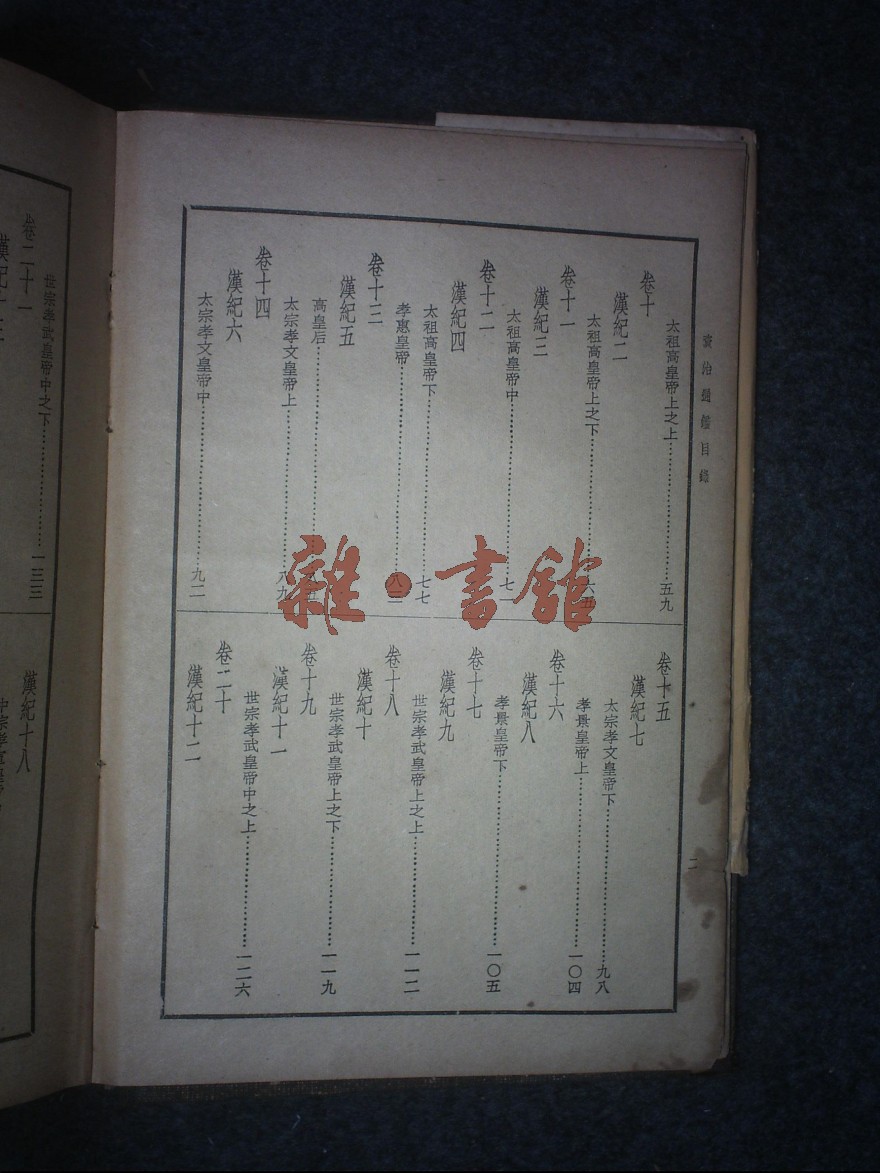 資治通鑑目錄
二
太祖高皇帝上之上……五九
卷十
漢紀二
太祖高皇帝上之下……
卷十一
漢紀三
太祖高皇帝中……七一
卷十二
漢紀四
太祖高皇帝下……七七
孝惠皇帝……
卷十三
漢紀五
高皇后……
太宗孝文皇帝上……八九
卷十四
漢紀六
太宗孝文皇帝中……九二
卷十五
漢紀七
太宗孝文皇帝下……九八
孝景皇帝上……一〇四
卷十六
漢紀八
孝景皇帝下……一〇五
卷十七
漢紀九
世宗孝武皇帝上之上……一一二
卷十八
漢紀十
世宗孝武皇帝上之下……一一九
卷十九
漢紀十一
世宗孝武皇帝中之上……一二六
卷二十
漢紀十二
世宗孝武皇帝中之下……一三三
卷二十一
漢紀十八
雜·書館